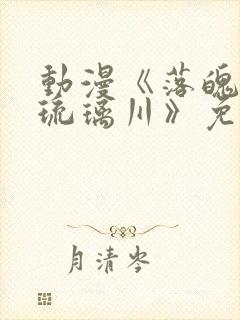 動漫《落魄
琉璃川》免
月清岑